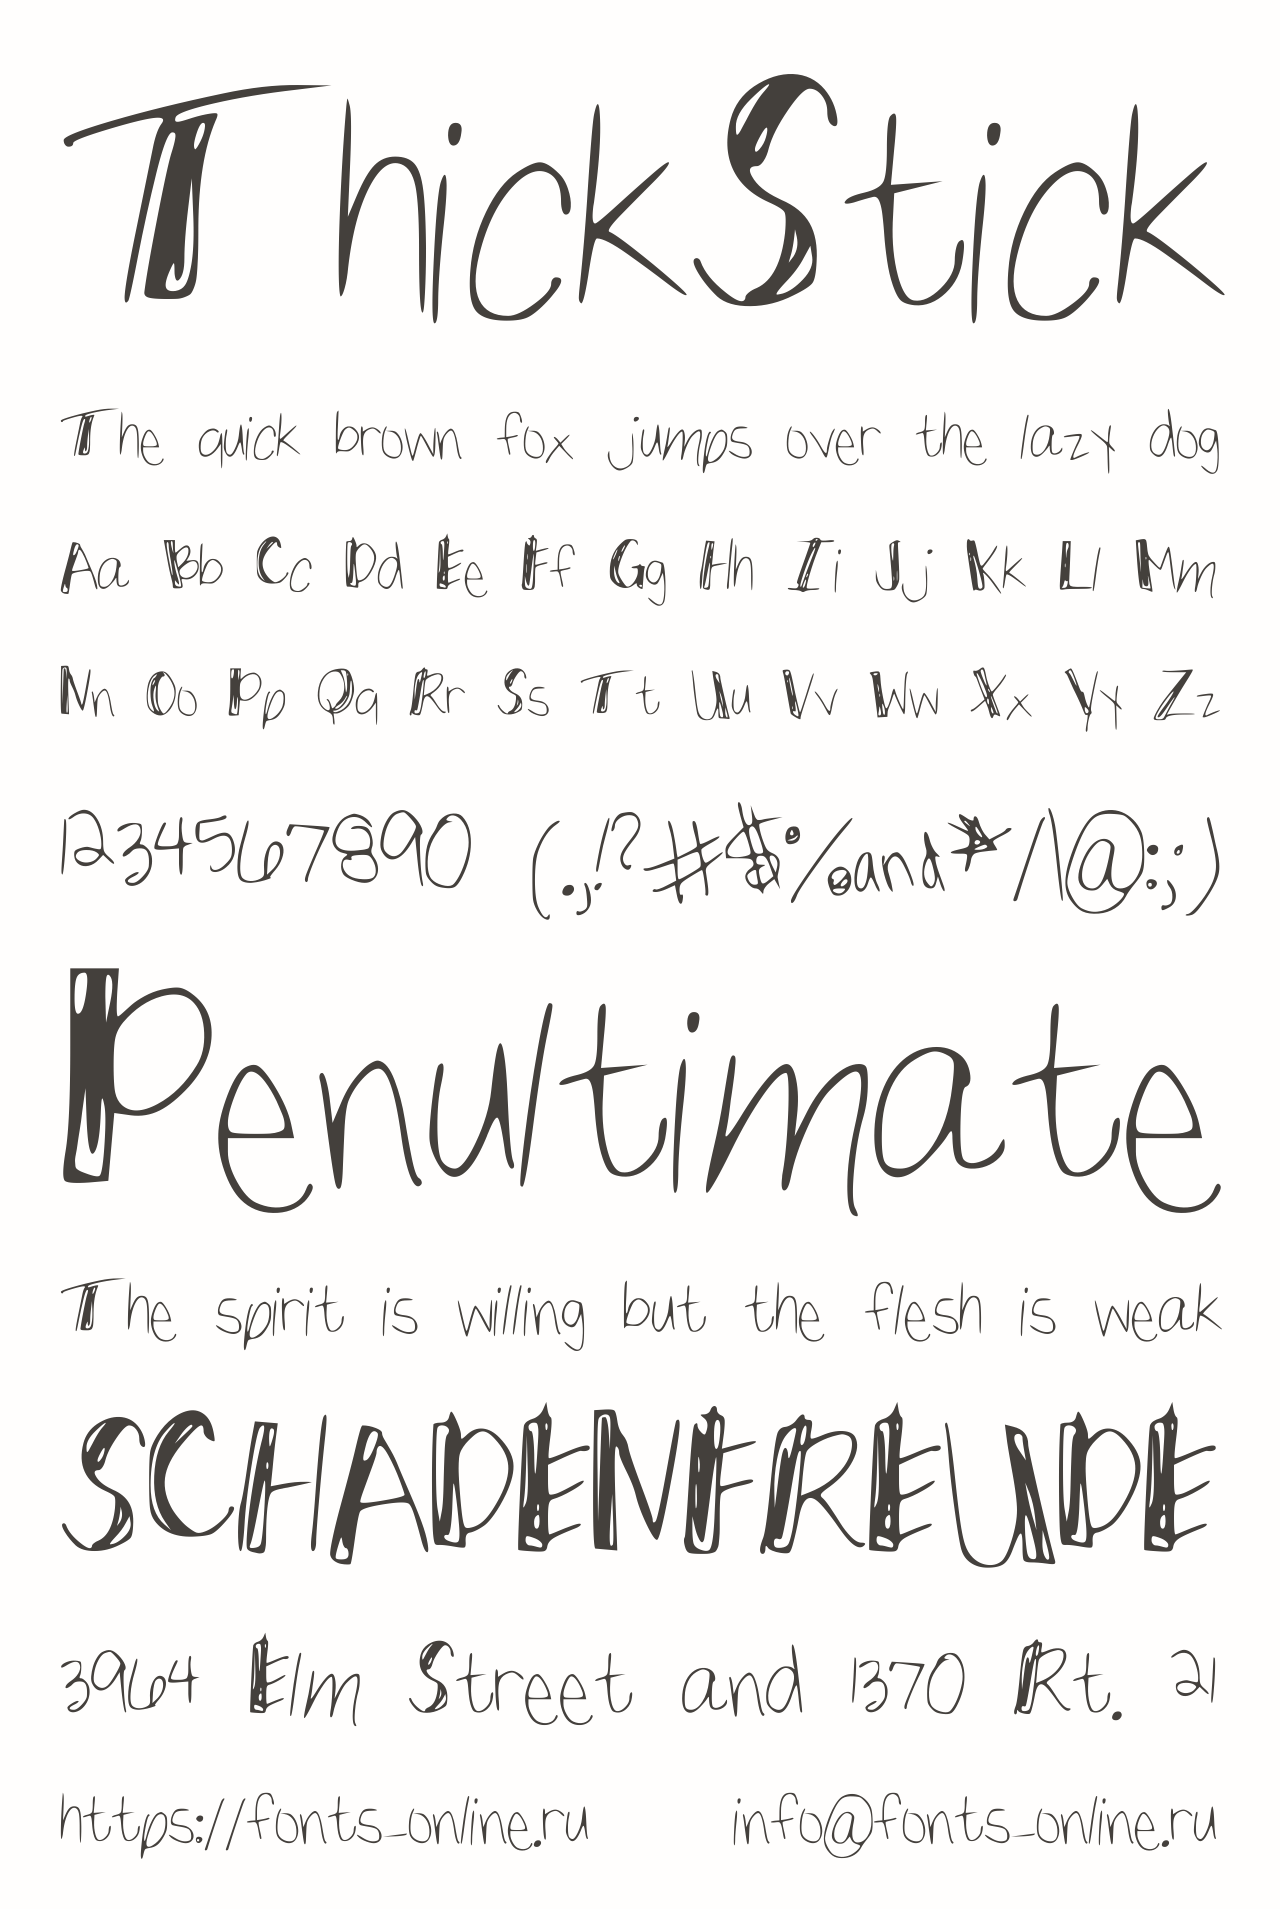 ThickStick
The quick brown fox jumps over the lazy dog
Aa Bb Cc Dd Ee Ff Gg Hh Ii Jj Kk Ll Mm
Nn Oo Pp Qq Rr Ss Tt Uu Vv Ww Xx Yy Zz
1234567890 (.,!?#$%and*/\@:;)
Penultimate
The spirit is willing but the flesh is weak
SCHADENFREUDE
3964 Elm Street and 1370 Rt. 21
https://fonts-online.ru info@fonts-online.ru